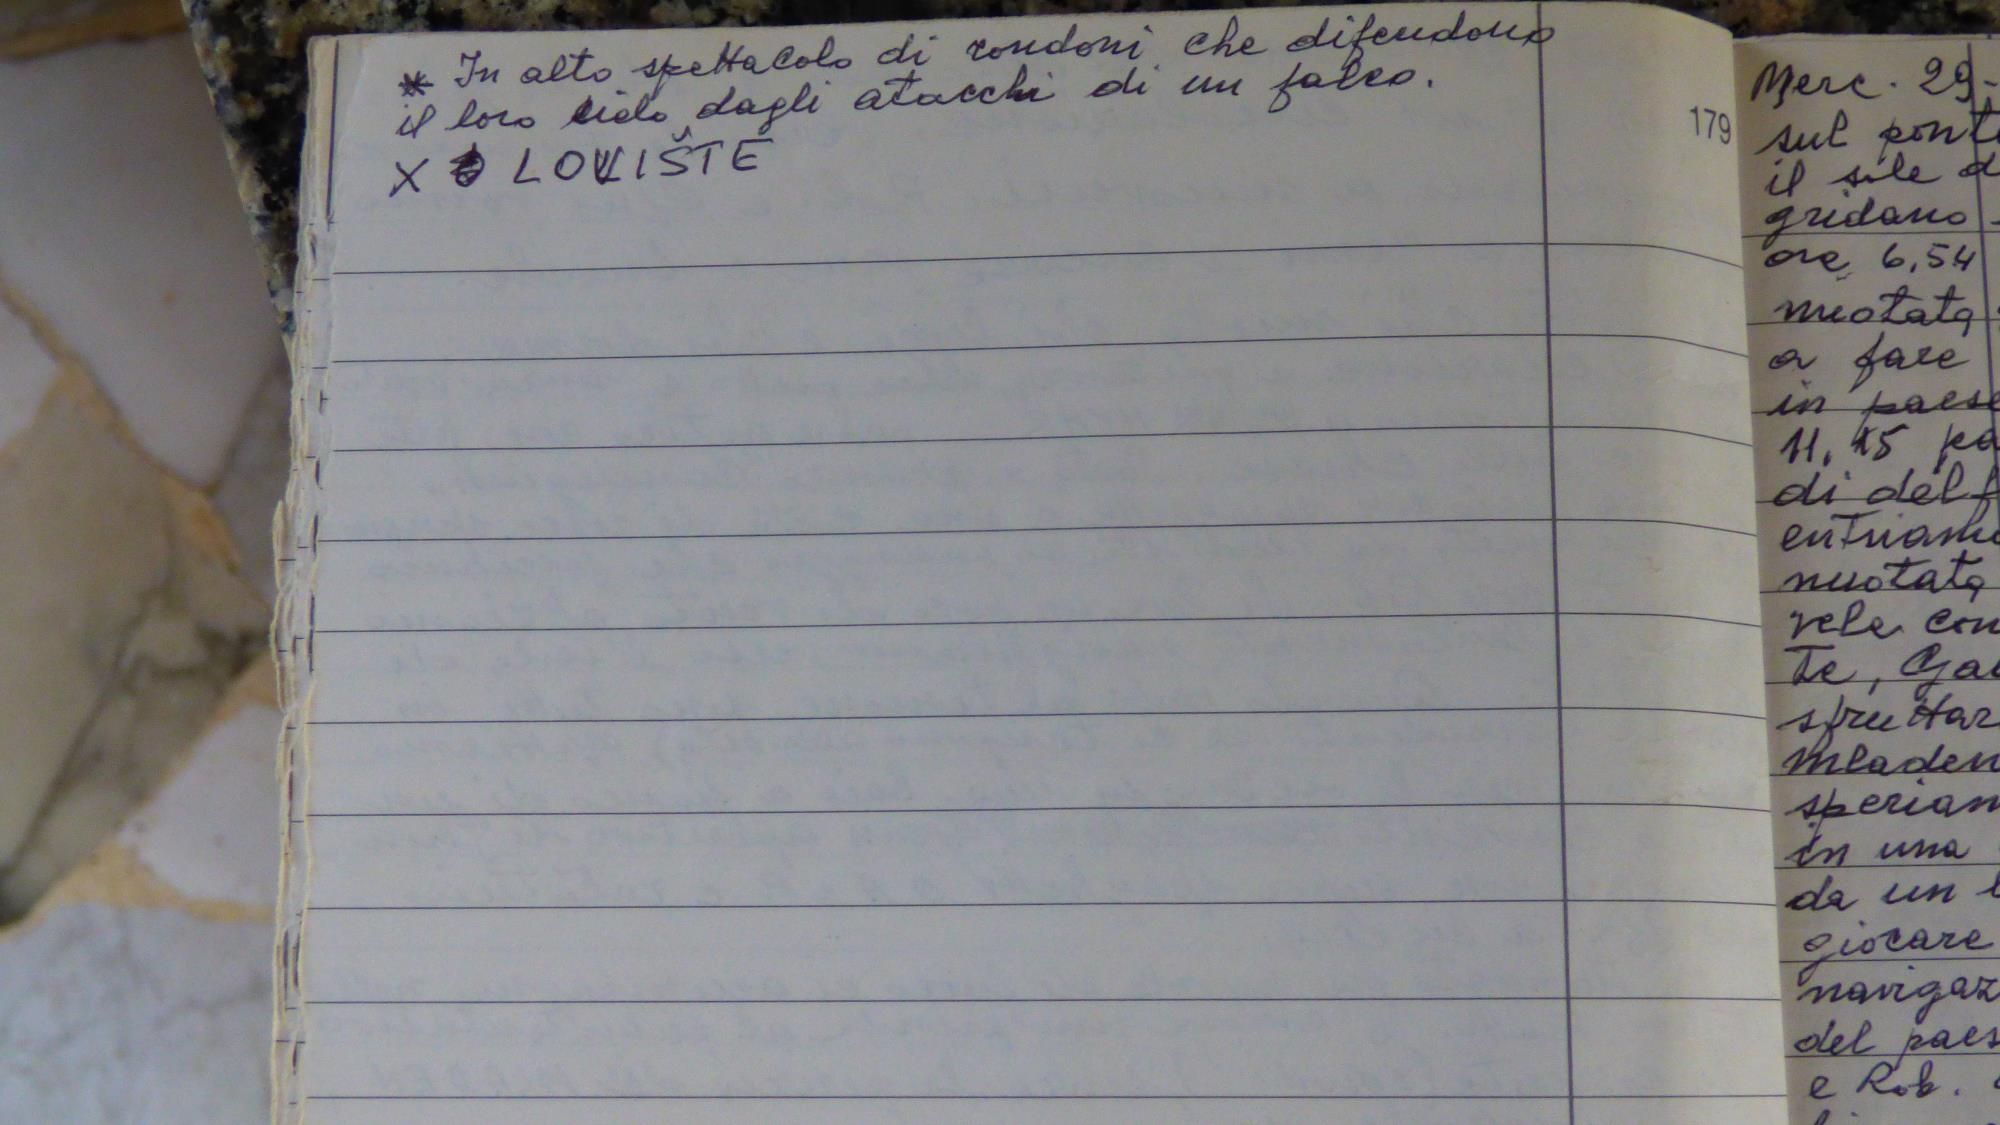 * In alto spettacolo di rondoni che difendono
il loro nido dagli atacchi di un falco.
X LOVIŠTE
179
Merc. 29-
sul ponte
il sole d
gridano
ore 6,54
nuotata
a fare
in paese
11,15 pa
di delf
entriamo
nuotata
vela con
te, Ga
sfruttar
mladen
sperian
in una
da un l
giocare
navigaz
del paes
e Rob.